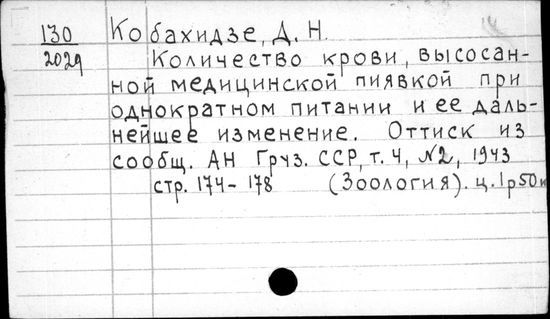 130 Кобахидзе, Д. Н.
2029 Количество крови, высосан-
ной медицинской пиявкой при
однократном питании и ее даль-
нейшее изменение. Оттиск из
сообщ. АН Груз. ССР, т. 4, №2, 1943
стр. 174-178 (Зоология). ц. 1р50к